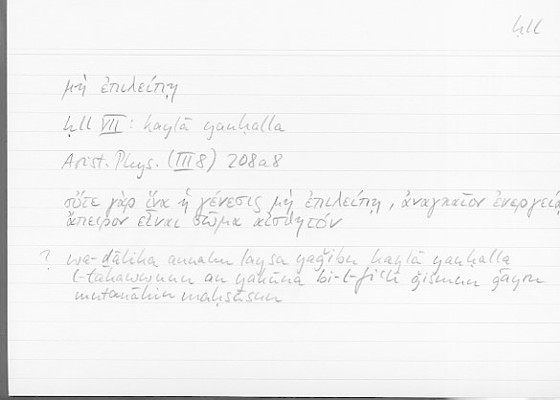 ḥll
μὴ ἐπιλείπῃ
ḥll VII: kaylā yanḥalla
Arist. Phys. (III 8) 208a8
οὔτε γὰρ ἵνα ἡ γένεσις μὴ ἐπιλείπῃ, ἀναγκαῖον ἐνεργείᾳ
ἄπειρον εἶναι σῶμα αἰσθητόν
? wa-ḏālika annahu laysa yaǧibu kaylā yanḥalla
l-takawwunu an yakūna bi-l-fiʿli ǧismun ġayru
mutanāhin maḥsūsun